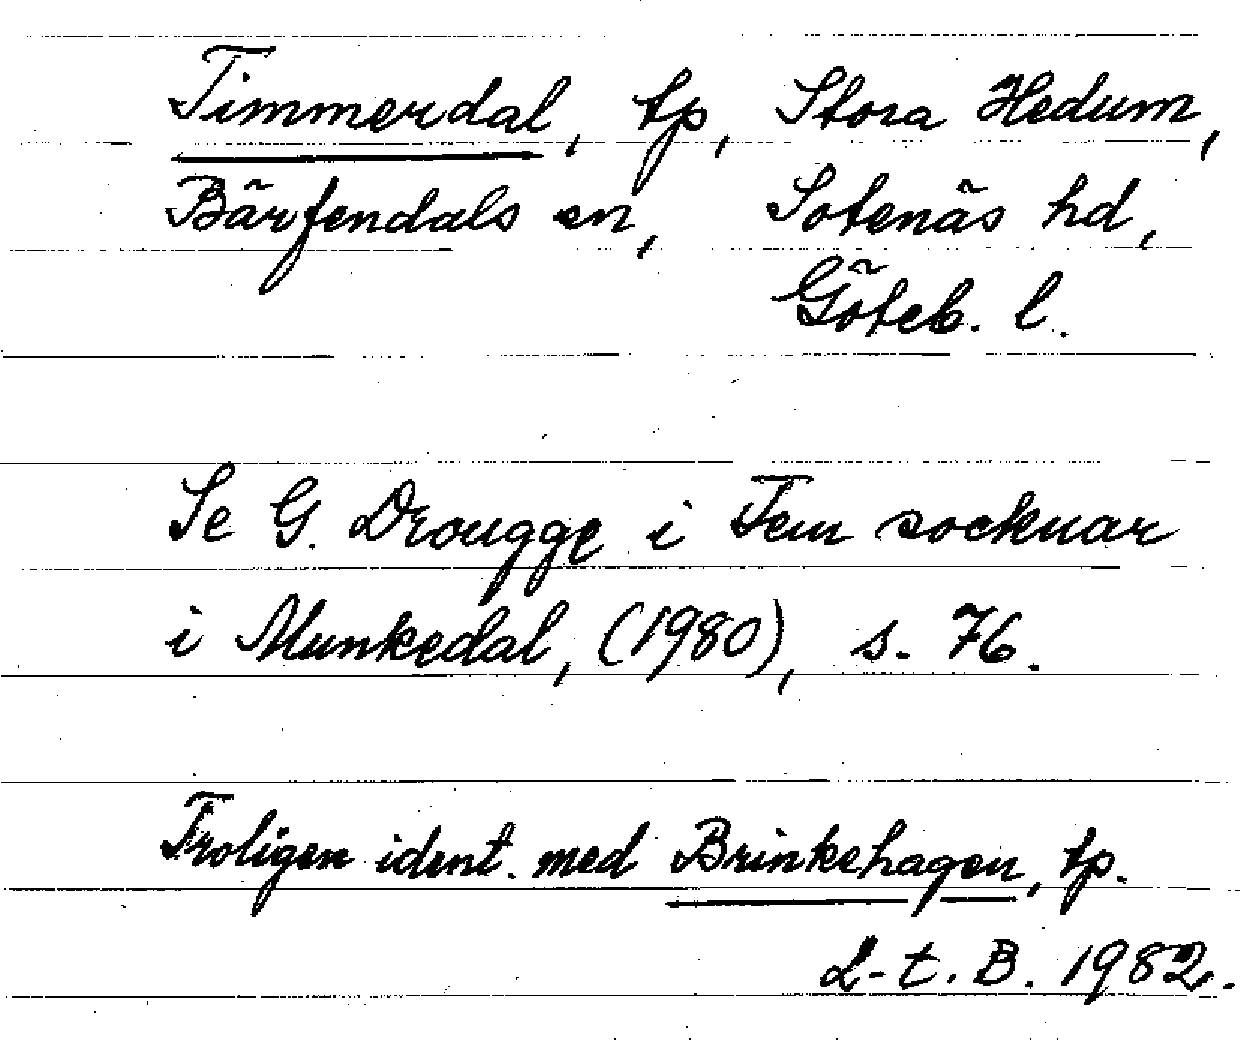 Timmerdal, tp, Stora Hedum,
Bärfendals sn, Sotenäs hd,
Göteb. l.
Se G. Drougge i Fem socknar
i Munkedal, (1980), s. 76.
Troligen ident. med Brinkehagen, tp.
L-t. B. 1982.